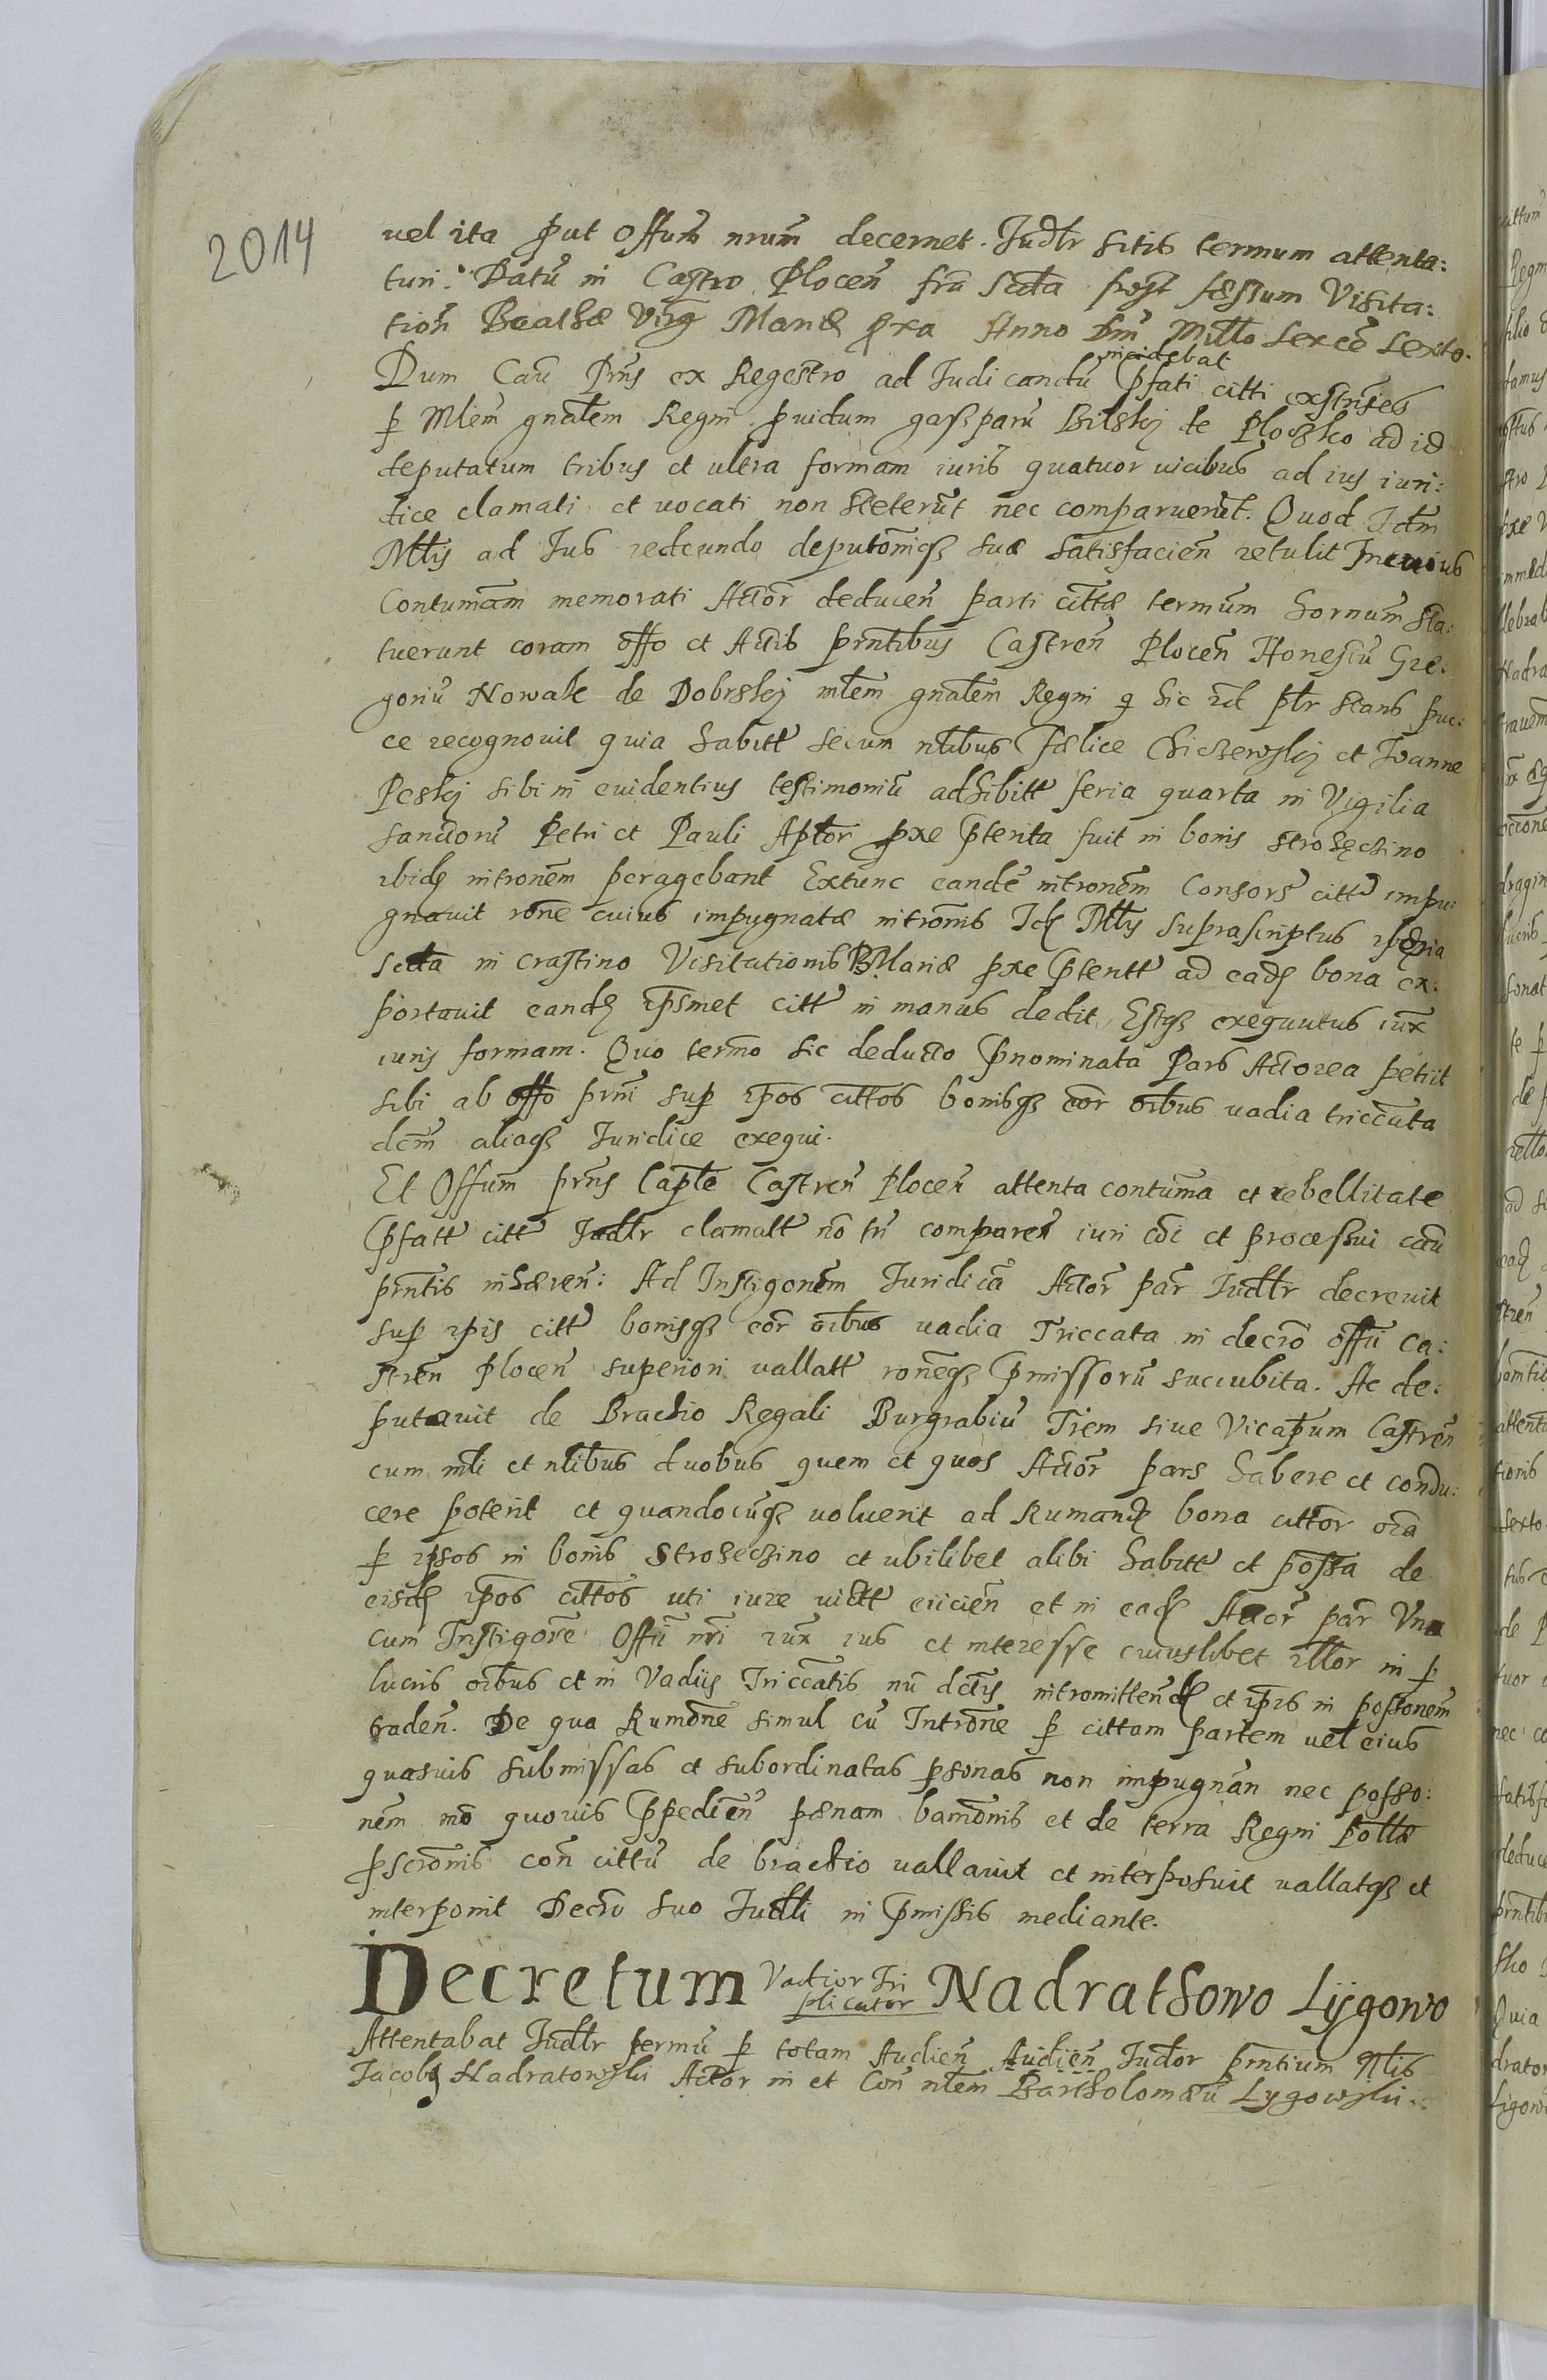 2014
uel ita ꝓut Offum nrum decernet. Judlr sitis termum attenta:
turi. Datū in Castro Plocen̄ fria sexta post festum Visita:
tion̄ Beatae Virg Mariae pxa Anno Dni Millo sexcē sexto.
Dum Cau Prns ex Regestro ad Judicandū incidebat pfati citti extunc
p Mlem gnalem Regni ꝓuidum gasparū Bilski de Plocsko ad id
deputatum tribus et ultra formam iuris quatuor uicibus ad ius iuri:
dice clamati et uocati non steterūt nec comparuerūt. Quod Idm
Mtlis ad Ius redeundo deputōniqȝ suae satisfacien̄ retulit In cuius
Contumām memorati Actor deducen̄ parti cittae termum hornum sta:
tuerunt coram offo et Actis prntibus Castren̄ Plocen̄ Honestū Gre.
goriū Nowak de Dobrski mlem gnalem Regni q hic Jd ptr stans puc:
ce recognouit quia habitt secum nlibus Faelice Chiczewski et Ioanne
Peski sibi in euidentius testimoniū adhibitt feria quarta in Vigilia
sanctorū Petri et Pauli Aptor pxe pterita fuit in bonis Strozęcino
ibidȝ intronem peragebant Extunc eandē intronem Consors citt impu:
gnauit rone cuius impugnatae intronis Idȝ Mtls suprascriptus feria
sexta in crastino Visitationis B Mariae pxe ptentt ad eadȝ bona ex:
portauit eandȝ ipsmet citt in manus dedit, Estqȝ exequutus iux
iuris formam. Quo termo sic deducto pnominata Pars Actorea petiit
sibi ab offo prni sup ipos cittos bonisqȝ eor oibus uadia triccata
dcm aliaqȝ Iuridice exequi.
Et Offum prns Caple Castren̄ Plocen̄ attenta contuma et rebellitate
pfatt citt Judlr clamatt nō tn comparen̄ iuri cōi et processui cau
prntis inhaeren: Ad Instigonem Iuridicā Actor par Judlr decreuit
sup ipis citt bonisqȝ eor oibus uadia Triccata in decro offii ca:
stren̄ Plocen̄ superiori uallatt roneqȝ pmissorū succubita. Ac de:
putauit de Brachio Regali Burgrabiū Trem siue Vicapum Castren̄
cum mli et nlibus duobus quem et quos Actor pars habere et condu:
cere poterit et quandocūqȝ uoluerit ad Rumandȝ bona cittor oia
p ipsos in bonis Strozeczino et ubilibet alibi habitt et possa de
eisdȝ ipos cittos uti iure uictt eiicien̄ et in eadȝ Actor par Vna
cum Instigore Offii nri iux ius et interesse cuiuslibet illor in p
lucris oibus et in Vadiis Triccatis nū dctis intromittendȝ et ipis in possonem
traden̄. De qua Rumone simul cū Introne p cittam partem uel eius
quasuis submissas et subordinatas psonas non impugnan̄ nec posso:
nem mō quouis ppedien̄ paenam bamonis et de terra Regni Pollae
pscronis con̄ cittū de brachio uallauit et interposuit uallatqȝ et
interponit Decro suo Judli in pmissis mediante.
Decretum Vadior Tri plicator Nadrathowo Lÿgowo
Attentabat Judlr termū p totam Audien̄ Audien̄ Judior prntium
Jacobȝ Nadratowski Actor in et Con nlem Bartholomaeū Lygowski